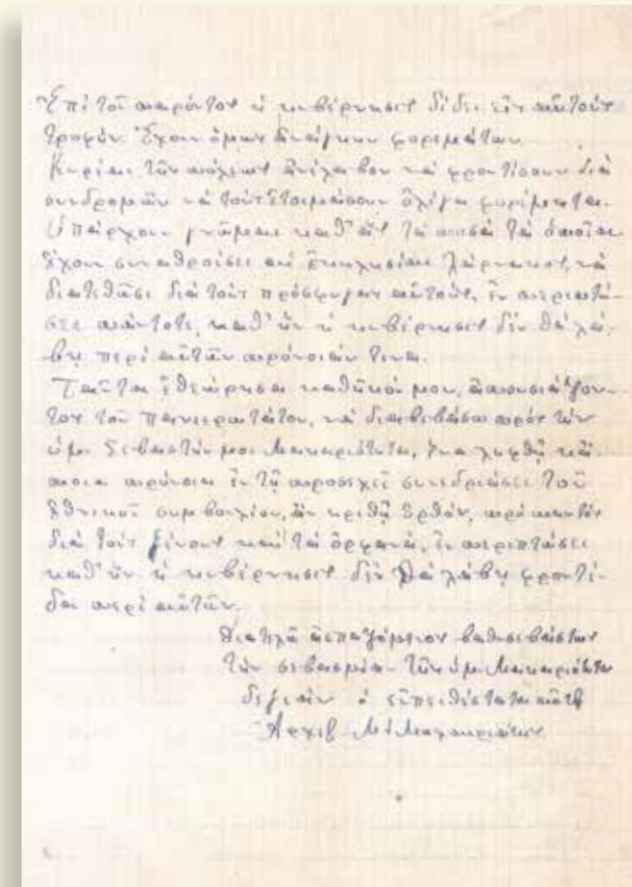 Ἐπὶ τοῦ παρόντος ἡ κυβέρνησις δίδει εἰς αὐτοὺς
τροφήν. Ἔχουν ὅμως ἀνάγκην φορεμάτων.
Κυρίαι τῶν πόλεων ἀνέλαβον νὰ φροντίσουν διὰ
συνδρομῶν νὰ τοὺς ἑτοιμάσουν ὀλίγα φορέματα.
Ὑπάρχουν γνῶμαι καθ' ἃς τὰ ποσὰ τὰ ὁποῖα
ἔχουν συναθροίσει αἱ ἐκκλησίαι Λάρνακος, νὰ
διατεθῶσι διὰ τοὺς πρόσφυγας αὐτούς, ἐν περιπτώ-
σει πάντοτε, καθ' ἣν ἡ κυβέρνησις δὲν θὰ λά-
βῃ περὶ αὐτῶν πρόνοιάν τινα.
Ταῦτα ἐθεώρησα καθῆκόν μου, ἀπουσιάζον-
τος τοῦ Πανιερωτάτου, νὰ διαβιβάσω πρὸς τὴν
ὑμ. Σεβαστήν μοι Μακαριότητα, ἵνα ληφθῇ κά-
ποια πρόνοια ἐν τῇ προσεχεῖ συνεδριάσει τοῦ
Ἐθνικοῦ συμβουλίου, ἂν κριθῇ ὀρθόν, πρὸ παντὸς
διὰ τοὺς ξένους καὶ τὰ ὀρφανά, ἐν περιπτώσει
καθ' ἣν ἡ κυβέρνησις δὲν θὰ λάβῃ φροντί-
δα περὶ αὐτῶν.
Διατελῶ ἀσπαζόμενος βαθυσεβάστως
τὴν σεβασμίαν τῆς ὑμ. Μακαριότητος
δεξιὰν ὁ εὐπειθέστατος αὐτῆς